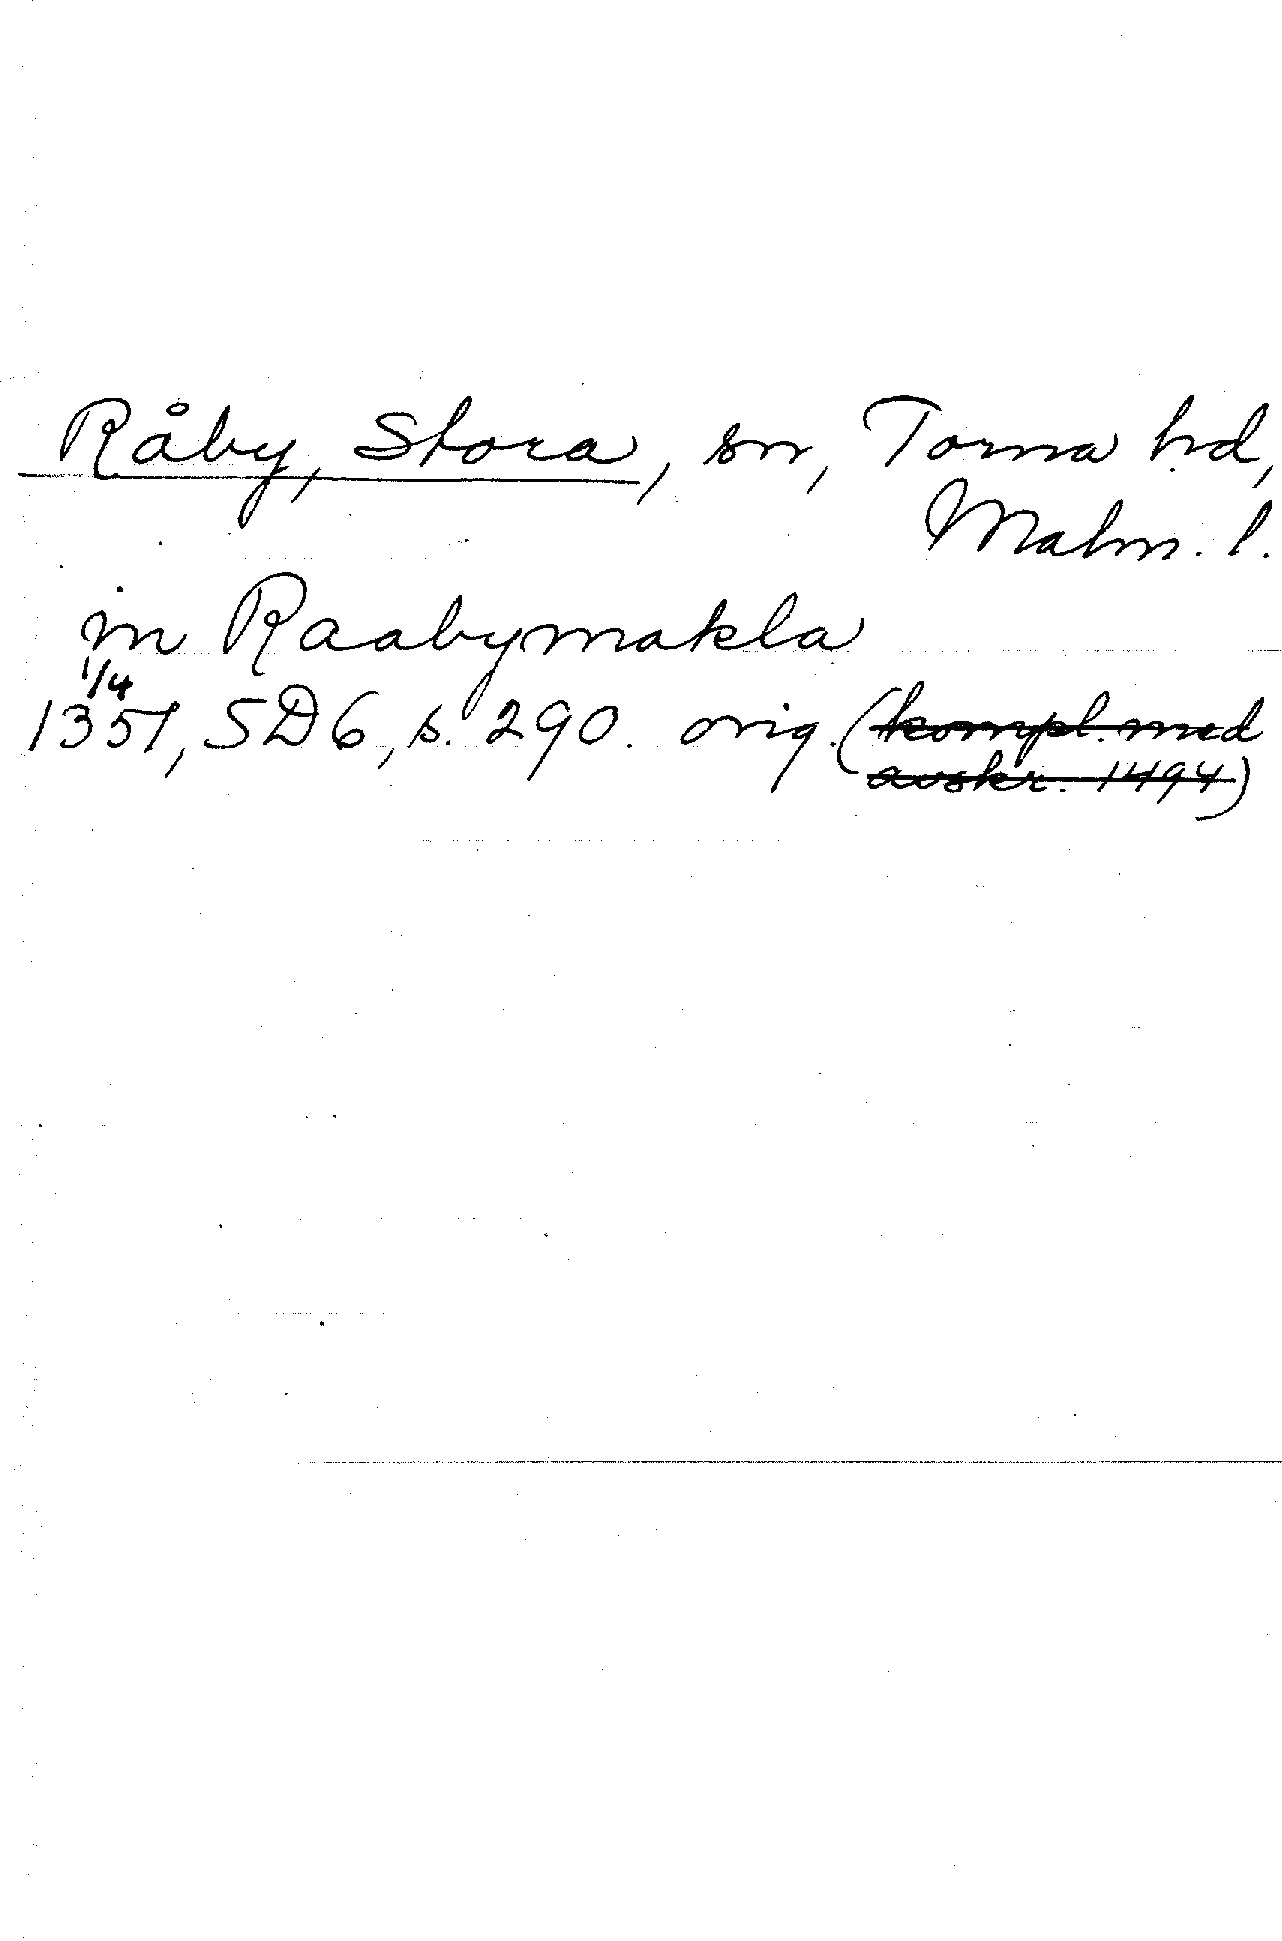 Råby, Stora, sn, Torna hd,
Malm. l.
in Raabymakla
1/4
1351, SD6, s. 290. orig. (kompl. med
avskr. 1494)